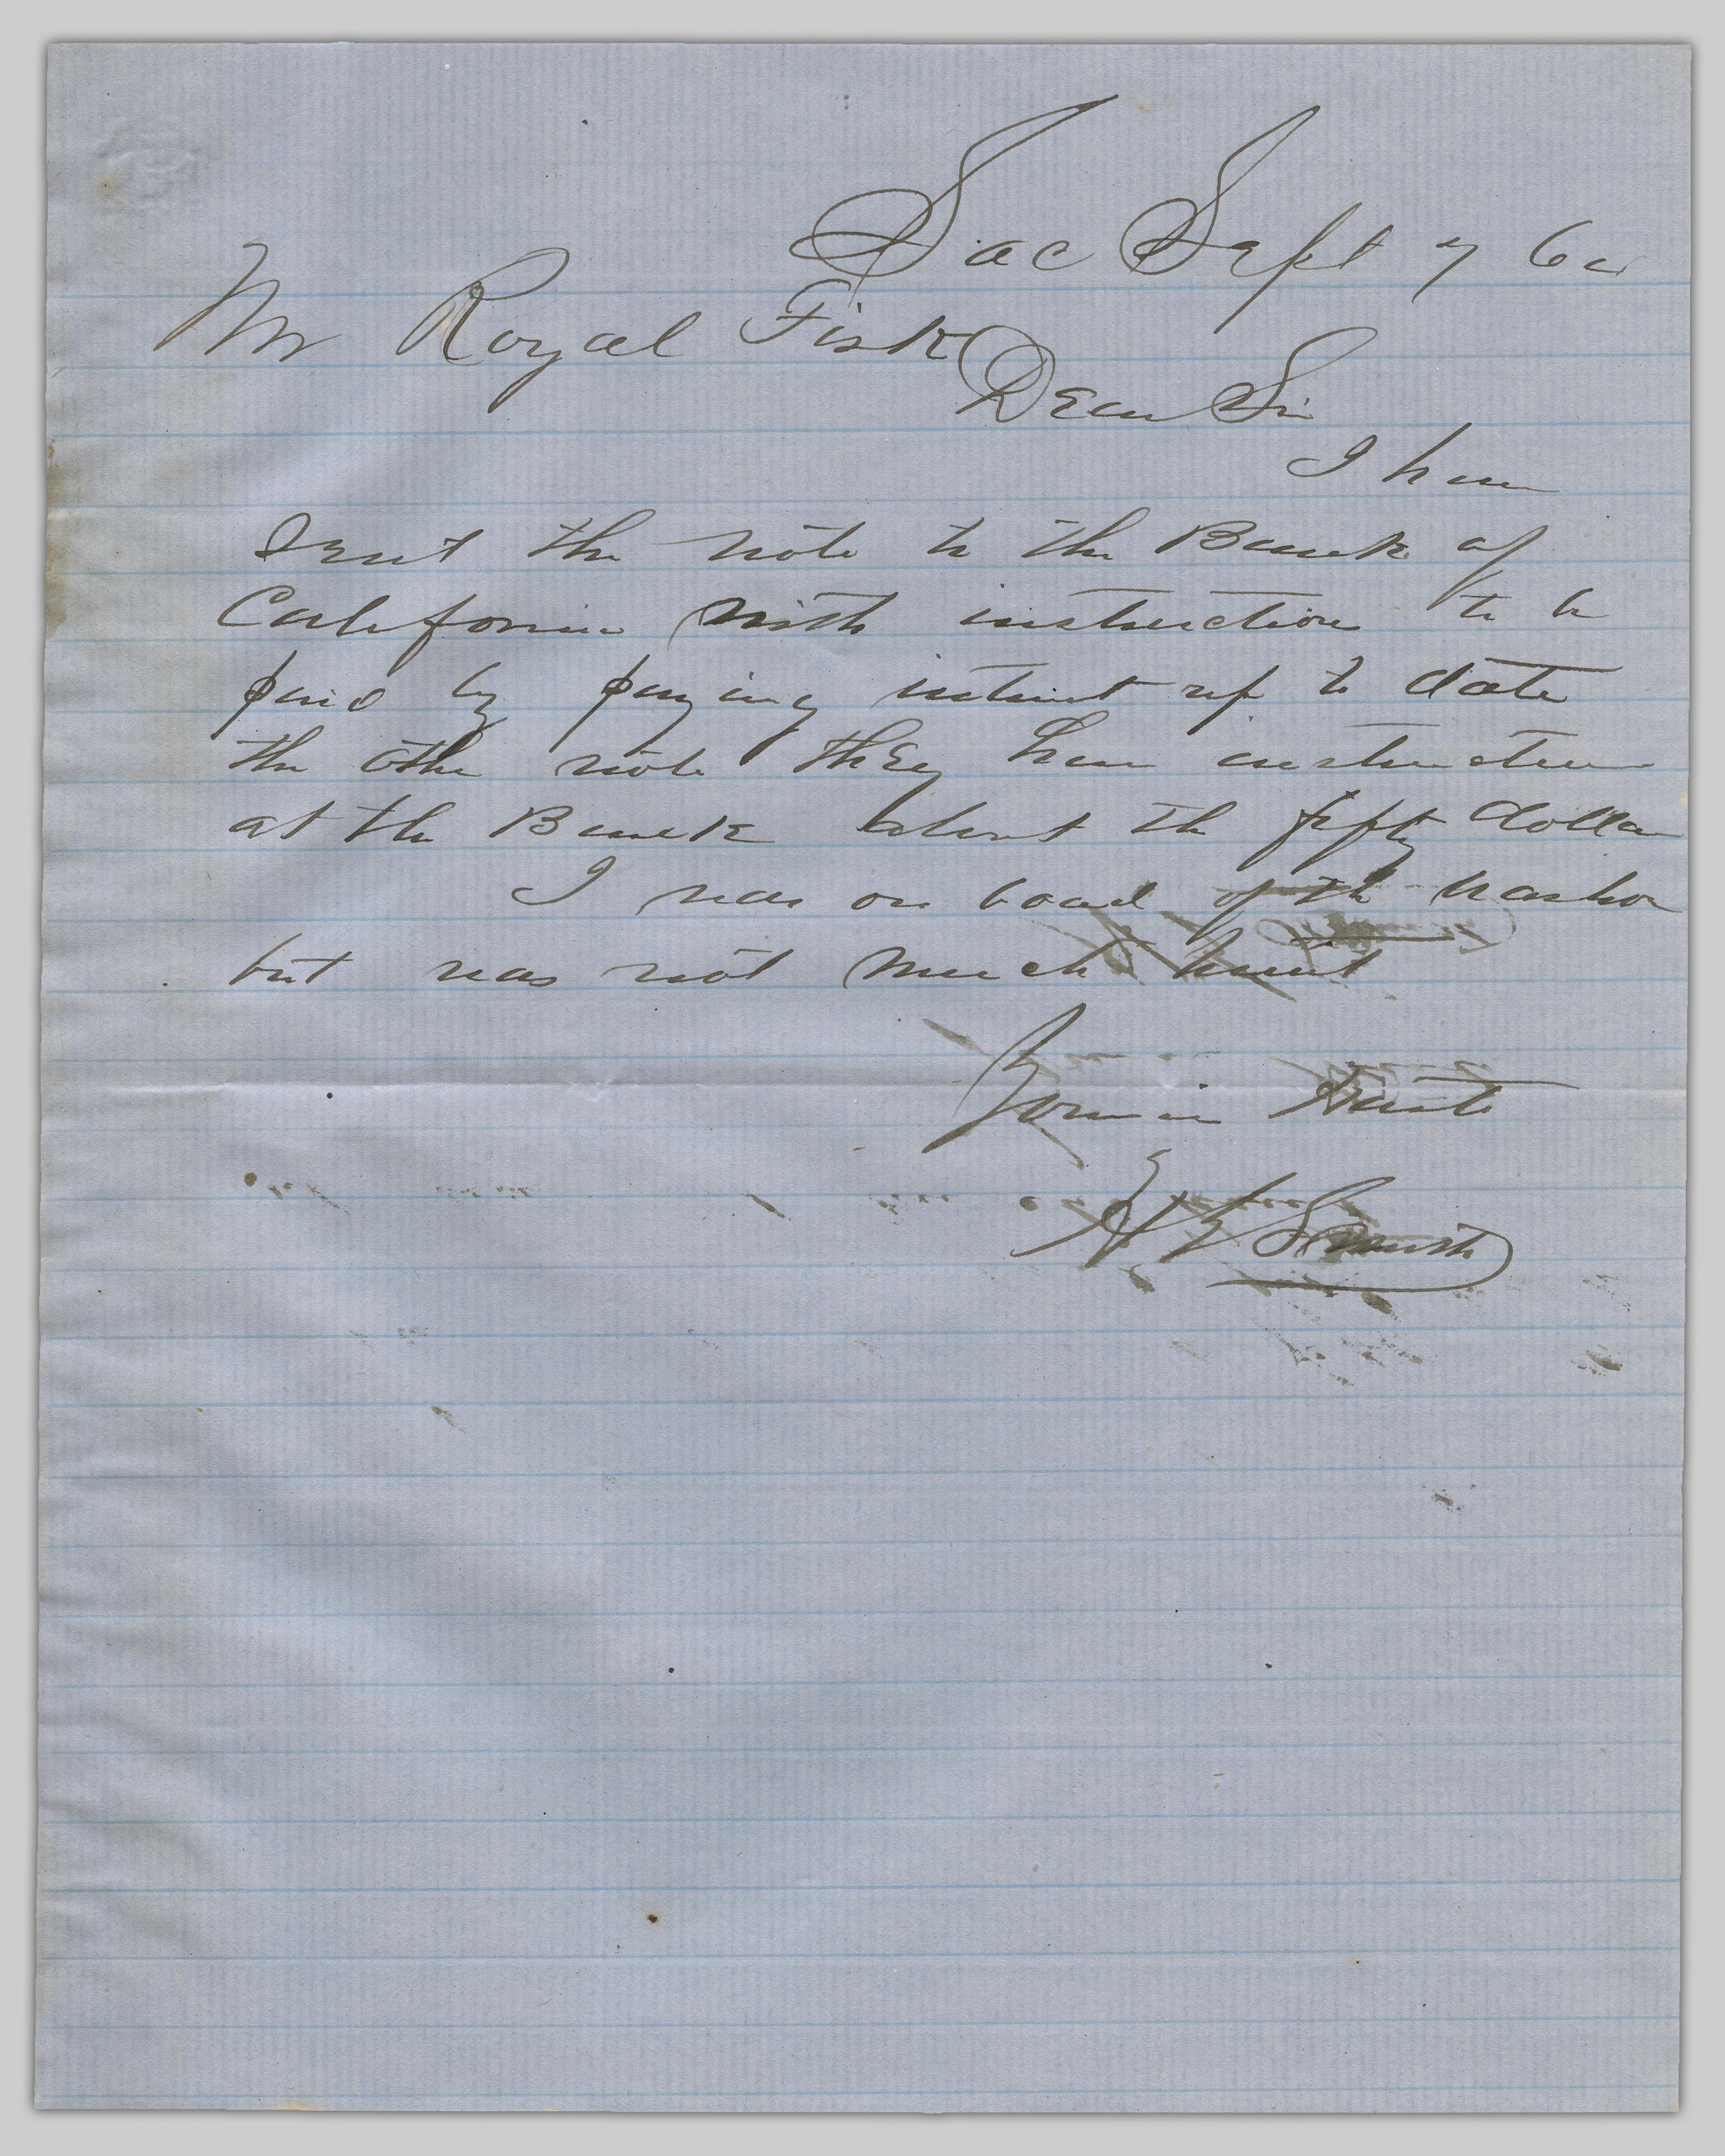 Sac Sept 7 64
Mr Royal Fisk
Dear Sir
I have
sent the note to the Bank of
California with instruction to be
paid by paying intrest up to date
the other note they have instruction
at the Bank about the fifty dollar
I was on board of the
but was not much hurt
Yours in haste
Smith